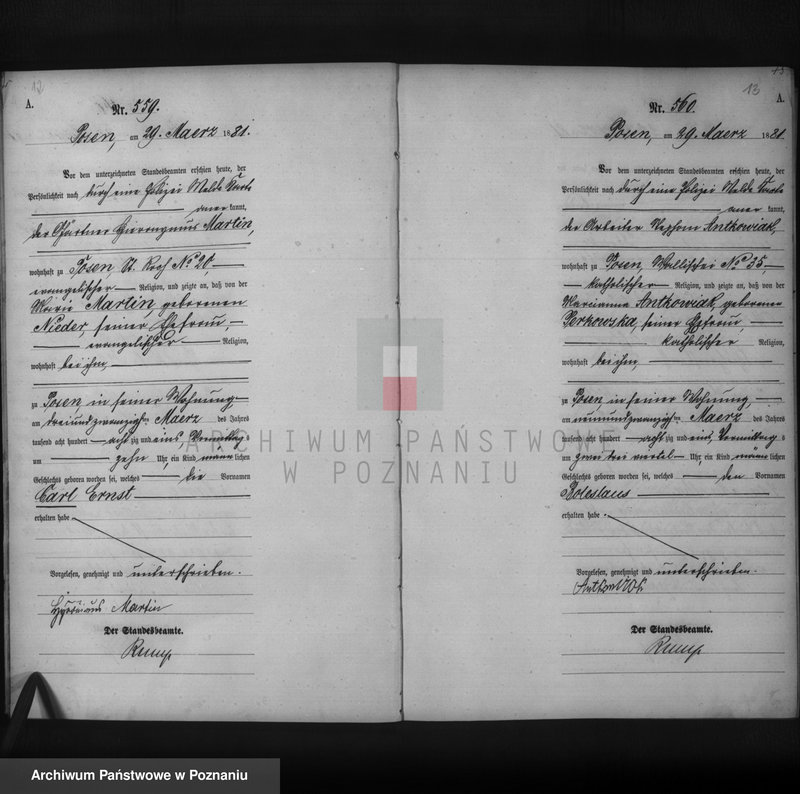 12
A.
Nr. 559.
Posen, am 29. Maerz 1881.
Vor dem unterzeichneten Standesbeamten erschien heute, der
Persönlichkeit nach durch eine Polizei Melde Karte
aner kannt,
der Gärtner Hieronymus Martin,
wohnhaft zu Posen St. Roch No 20
evangelischer Religion, und zeigte an, daß von der
Marie Martin, geborenen
Nieder, seiner Ehefrau,
evangelischer Religion,
wohnhaft bei ihm,
zu Posen in seiner Wohnung
am dreiundzwanzigsten Maerz des Jahres
tausend acht hundert achtzig und eins, Vormittags
um zehn Uhr, ein Kind männlichen
Geschlechts geboren worden sei, welches die Vornamen
Carl Ernst
erhalten habe
Vorgelesen, genehmigt und unterschrieben.
Martin
Der Standesbeamte.
Rump
13
A.
Nr. 560.
Posen, am 29. Maerz 1881
Vor dem unterzeichneten Standesbeamten erschien heute, der
Persönlichkeit nach durch eine Polizei Melde Karte
aner kannt,
der Arbeiter Stephan Antkowiak,
wohnhaft zu Posen, Wallischei No 35,
katholischer Religion, und zeigte an, daß von der
Marianna Antkowiak, geborenen
Perkowska, seiner Ehefrau,
katholischer Religion,
wohnhaft bei ihm,
zu Posen in seiner Wohnung,
am neunundzwanzigsten Maerz des Jahres
tausend acht hundert achtzig und eins, Vormittags
um zwei drei viertel Uhr, ein Kind männlichen
Geschlechts geboren worden sei, welches den Vornamen
Boleslaus
erhalten habe
Vorgelesen, genehmigt und unterschrieben.
Der Standesbeamte.
Rump
ARCHIWUM PAŃSTWOWE
W POZNANIU
Archiwum Państwowe w Poznaniu